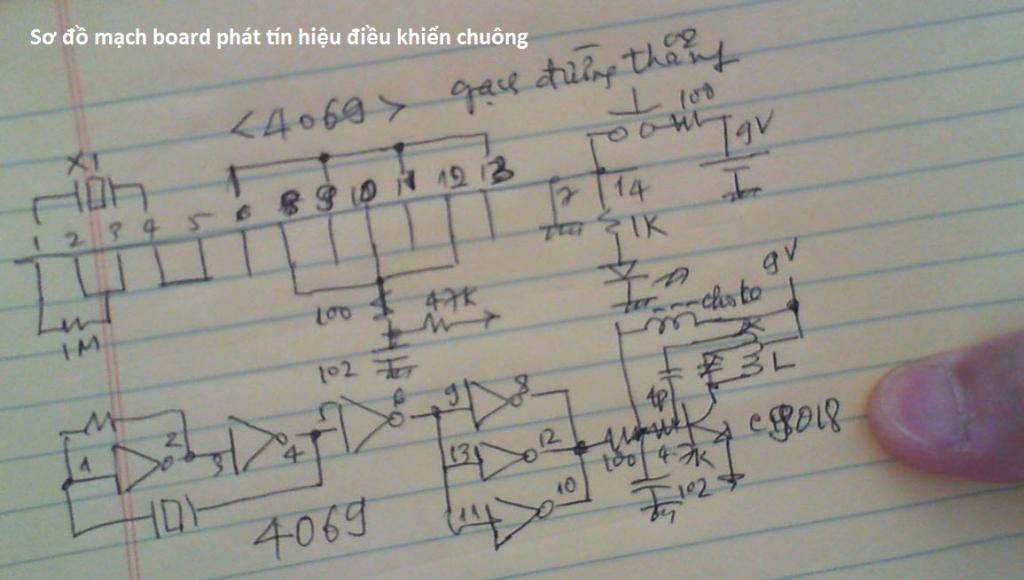 Sơ đồ mạch board phát tín hiệu điều khiển chuông
<4069> gạch đường thẳng
X1
1 2 3 4 5 6 8 9 10 11 12 13
1M
100
4.7K
102
7 14
100
9V
1K
9V
choke
L
1 2 3 4 5 6 9 8
13 12
11 10
4069
100 4.7K
102
C9018